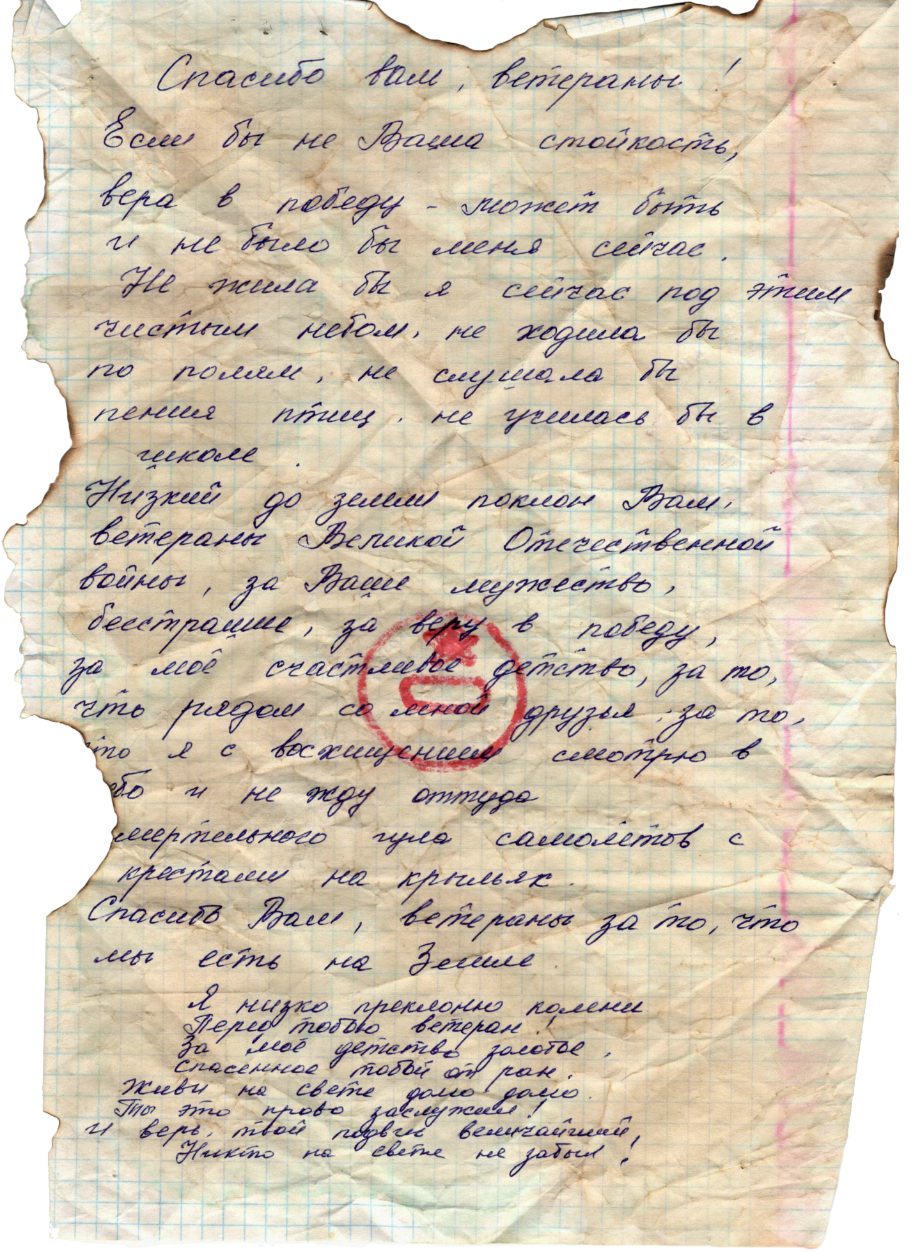 Спасибо вам, ветераны!
Если бы не Ваша стойкость,
вера в победу - может быть
и не было бы меня сейчас.
Не жила бы я сейчас под этим
чистым небом, не ходила бы
по полям, не слушала бы
пения птиц, не училась бы в
школе.
Низкий до земли поклон Вам,
ветераны Великой Отечественной
войны, за Ваше мужество,
бесстрашие, за веру в победу,
за моё счастливое детство, за то,
что рядом со мной друзья, за то,
то я с восхищением смотрю в
ебо и не жду оттуда
мертельного гула самолётов с
крестами на крыльях.
Спасибо Вам, ветераны за то, что
мы есть на Земле.
Я низко преклоню колени
Перед тобою ветеран!
За моё детство золотое,
Спасенное тобой от ран.
Живи на свете долго долго.
Ты это право заслужил!
И верь, твой подвиг величайший,
Никто на свете не забыл!